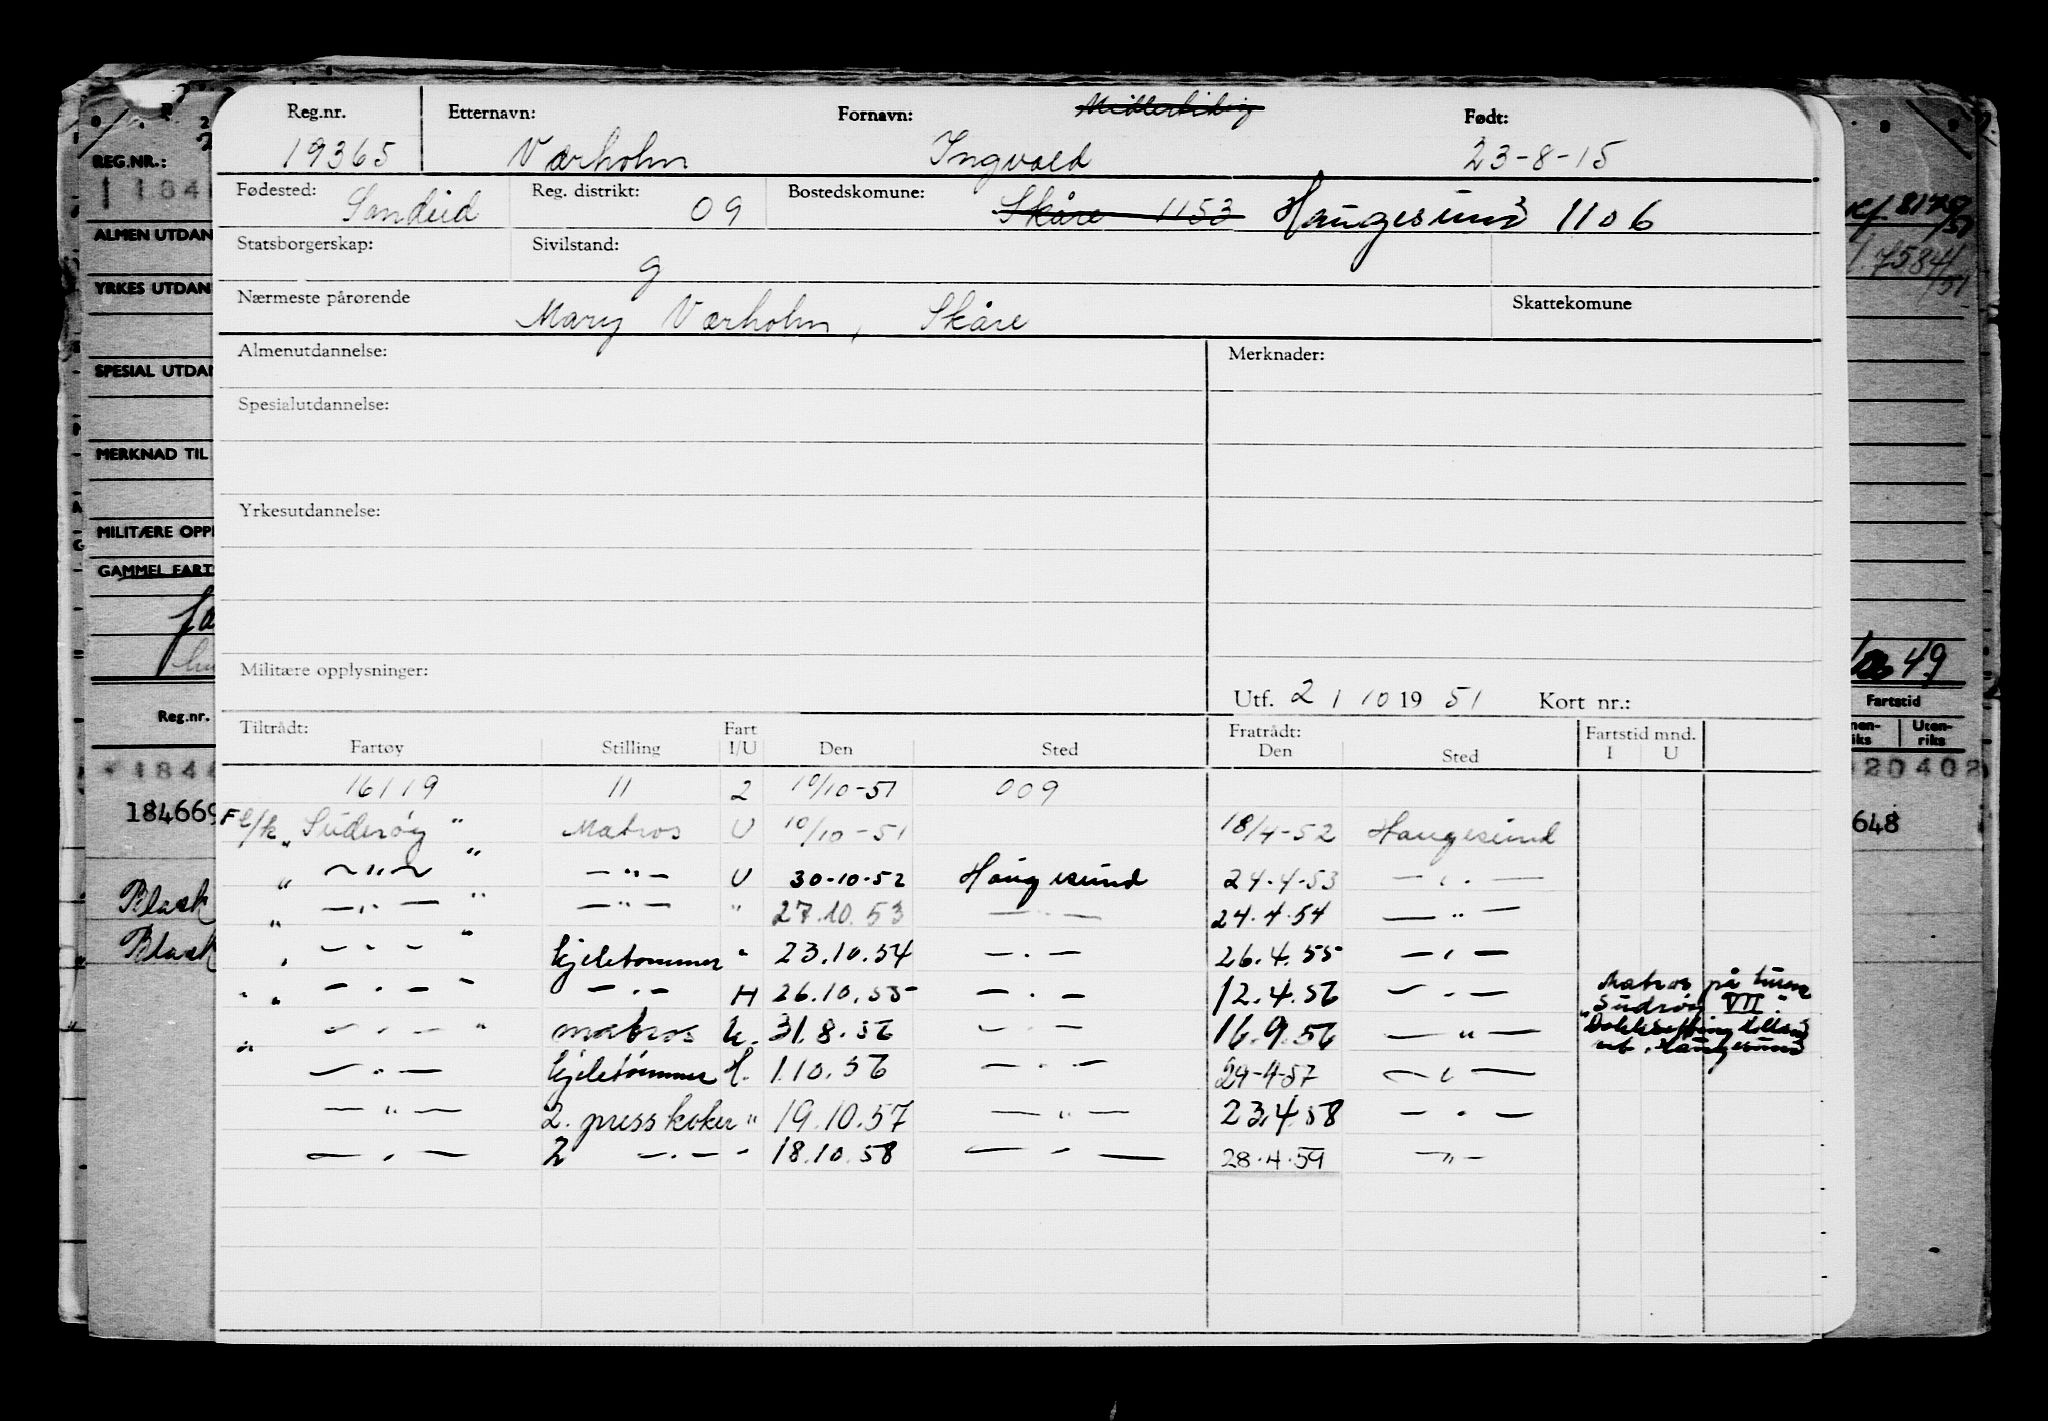 Reg.nr. Etternavn: Fornavn: Født:
19365 Værholm Ingvald 23-8-15
Fødested: Sandeid Reg. distrikt: 09 Bostedskomune: Skåre 1153 Haugesund 1106
Statsborgerskap: Sivilstand: g
Nærmeste pårørende Mary Værholm, Skåre Skattekomune
Almenutdannelse: Merknader:
Spesialutdannelse:
Yrkesutdannelse:
Militære opplysninger:
Utf. 2/10 19 51 Kort nr.:
Tiltrådt: Fart Fratrådt: Fartstid mnd.
Fartøy Stilling I/U Den Sted Den Sted I U
16119 11 2 10/10-51 009
F l/k „Suderøy" Matros U 10/10-51 18/4-52 Haugesund
„ —"— " —"— U 30-10-52 Haugesund 24.4.53 —"—
„ —"— " —"— " 27.10.53 —"— 24.4.54 —"—
„ —"— " kjeletømmer " 23.10.54 —"— 26.4.55 —"—
„ „ —"— " —"— H 26.10.55 —"— 12.4.56 —"— Matros på turen
„Sudrøy VII".
„ —"— " matros U. 31.8.56 —"— 16.9.56 —"—
—"— kjeletømmer H. 1.10.56 —"— 24-4-57 —"—
—"— 2. presskoker " 19.10.57 —"— 23.4.58 —"—
—"— 2 —"— " 18.10.58 —"— 28.4.59 —"—
REG.NR.:
ALMEN UTDAN
YRKES UTDAN
SPESIAL UTDAN
MERKNAD TIL
MILITÆRE OPP
GAMMEL FART
Reg.nr.
184669
Black
Black
8179/51
7584/51
49
Fartstid
Uten-
riks
20402
648